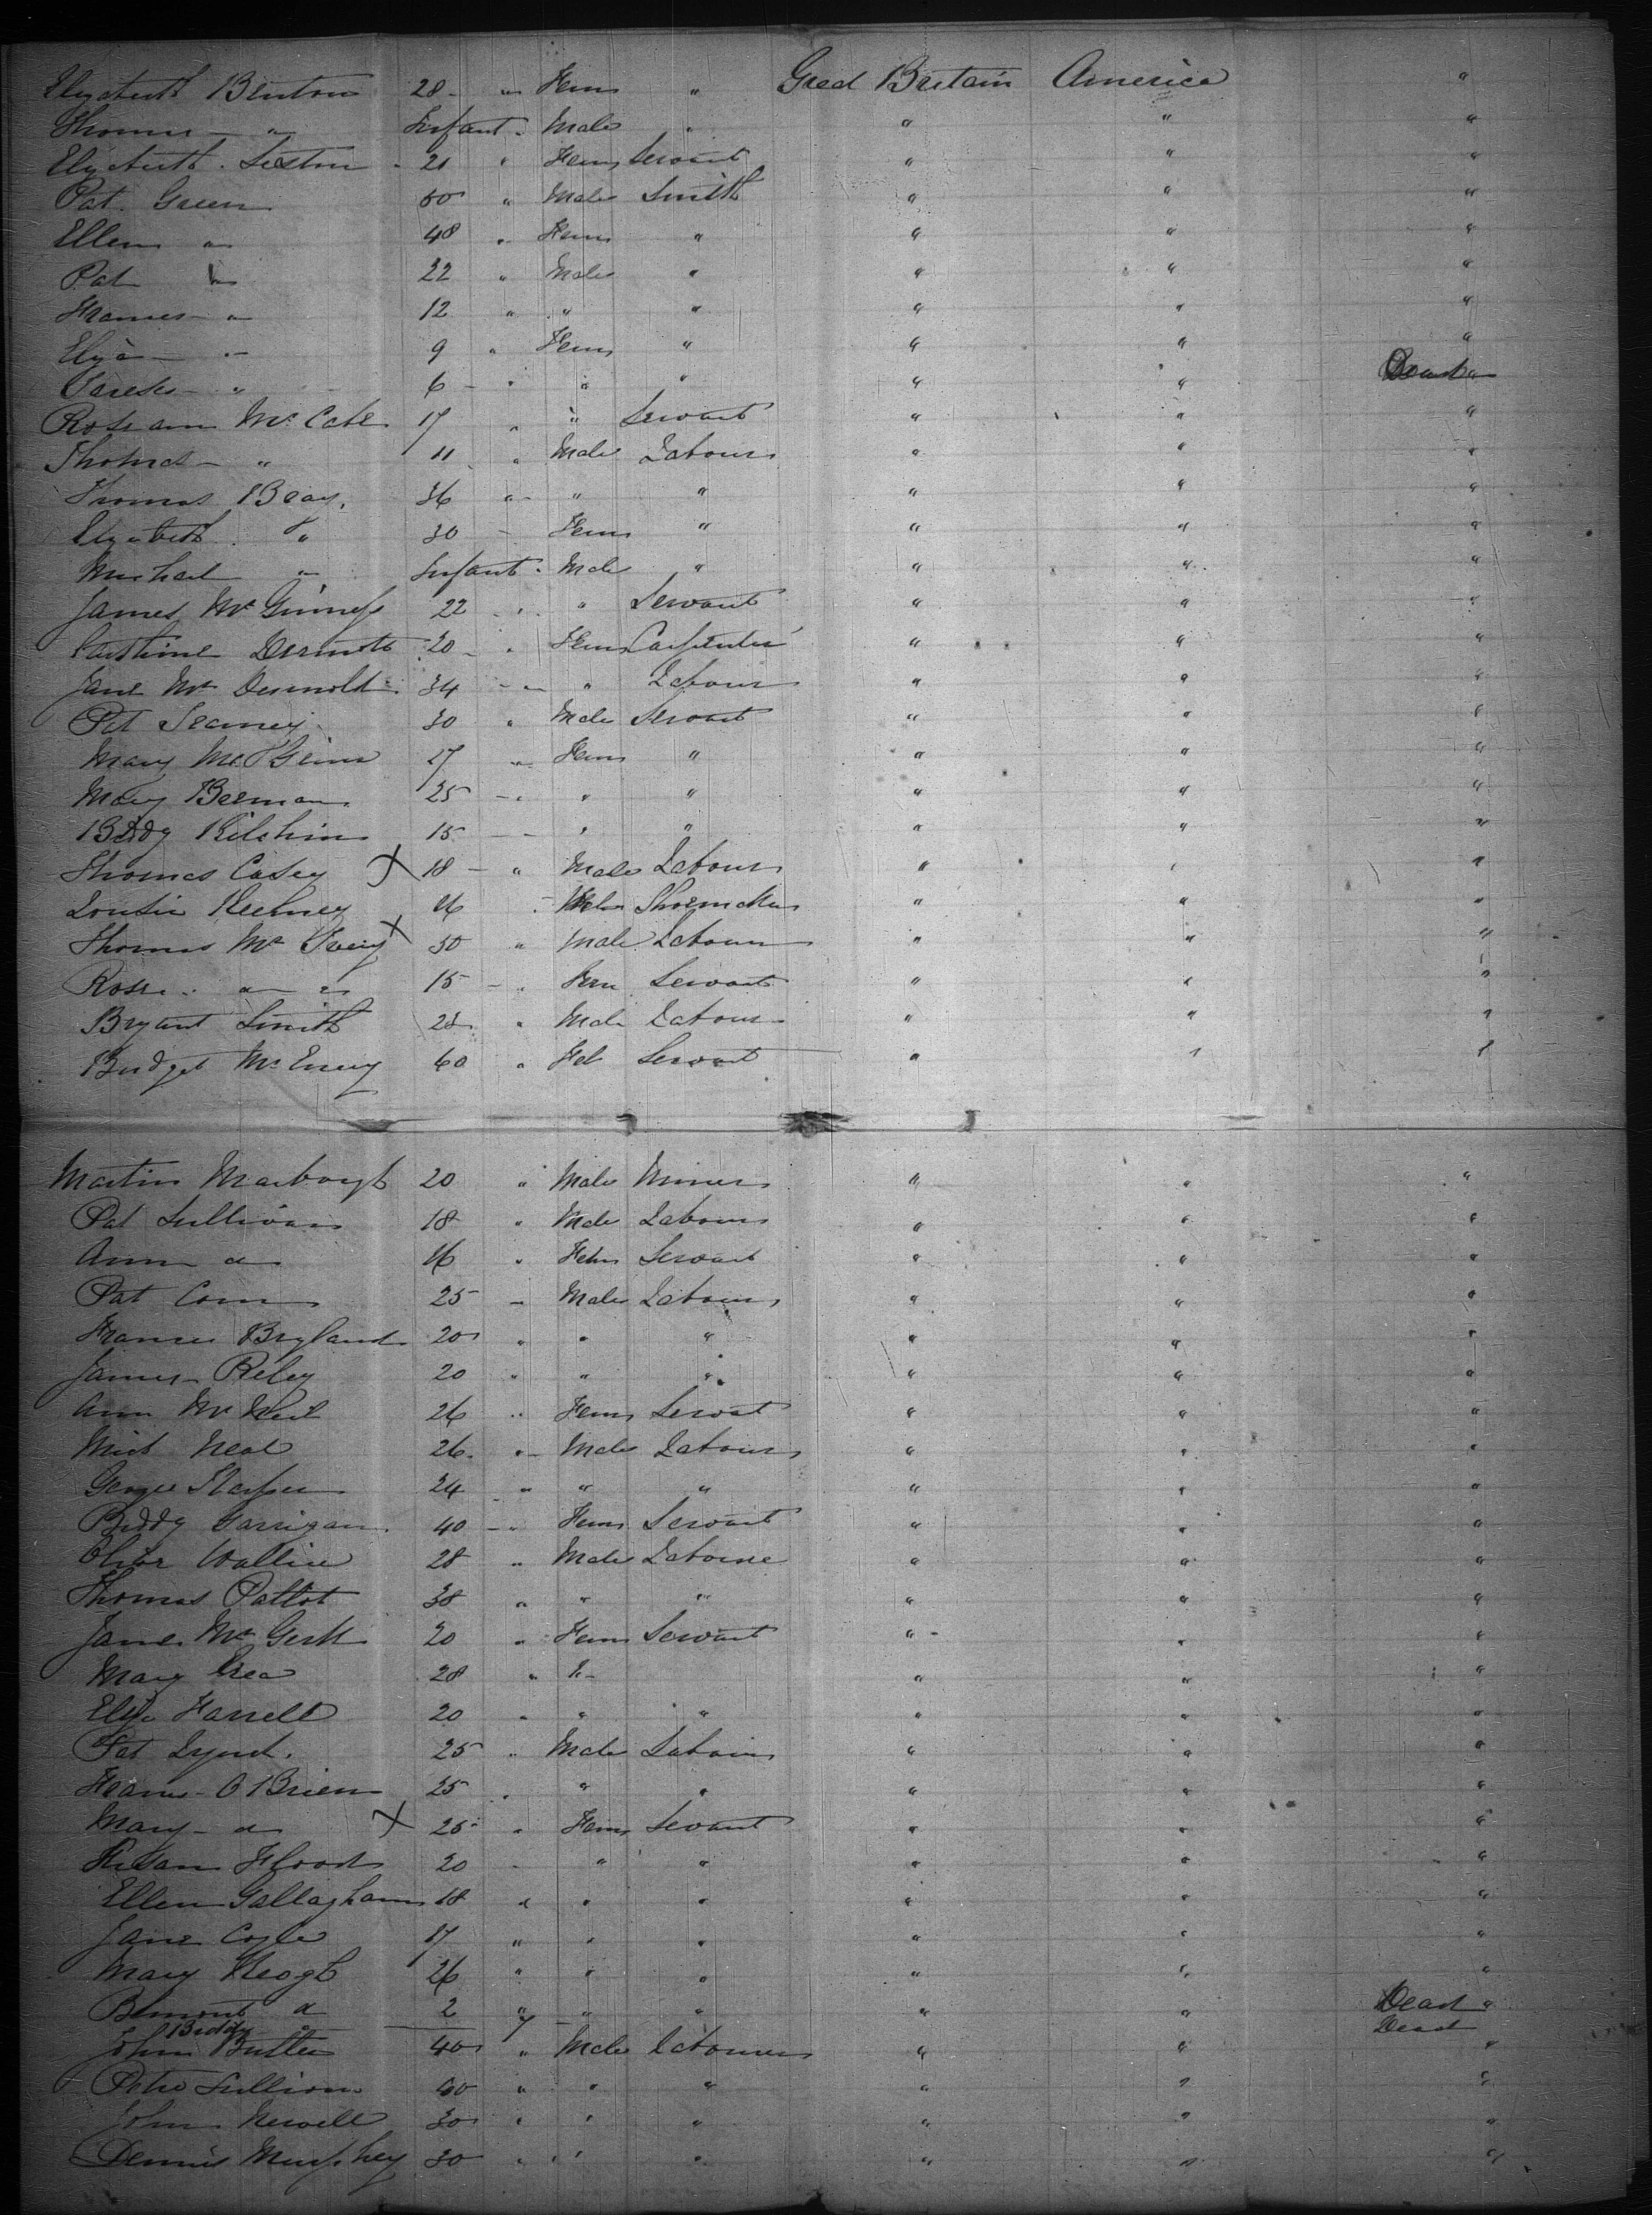 Elizabeth Benton 28 " Fem " Great Britain America "
Thomas " Infant " Male " " " "
Elizabeth Sexton 21 " Fem Servant " " "
Pat Green 50 " Male Smith " " "
Ellen " 48 " Fem " " " "
Pat " 22 " Male " " " "
Frances " 12 " " " " " "
Eliza " 9 " Fem " " " "
" 6 " " " " " Dead "
Rose ann McCabe 17 " " Servant " " "
Thomas " 11 " Male Labour " " "
Thomas Bray 36 " " " " " "
Elizabeth " 30 Fem " " " "
Michael " Infant " Male " " " "
James McGinness 22 " " Servant " " "
Dermott 20 " Fem Carpenter " " "
Jane McDermott 34 " " Labour " " "
Pat 30 " Male Servant " " "
Mary Mc 17 " Fem " " " "
Mary Beeman 25 " " " " " "
Biddy 15 " " " " "
Thomas Casey X 18 " Male Labour " " "
16 Shoemaker " " "
Thomas Mc X 50 " Male Labour " " "
Rose " " 15 " Fem Servant " " "
Bryant Smith " Male Labour " " "
Bridget McEnery 60 " Fel Servant " " "
Martin 20 " Male Miner " " "
Pat Sullivan 18 " Male Labour " " "
Ann " 16 " Fem Servant " " "
Pat 25 " Male Labour " " "
Frances Bryland 20 " " " " " "
James Reley 20 " " " " " "
Ann McNeil 26 " Fem Servat " " "
Mick Neal 26 " Male Labour " " "
George 24 " " " " " "
Biddy Garrigan 40 " Fem Servant " " "
28 " Male Laboure " " "
Thomas Pattot 38 " " " " " "
Jane 20 " Fem Servant " " "
Mary 28 " " " " "
Eliza Farrell 20 " " " " " "
Pat 25 " Male Labour " " "
Frances O Brien 25 " " " " " "
Mary " X 25 " Fem Servant " " "
Susan Flood 20 " " " " "
Ellen Gallagham 18 " " " " " "
Jane Coyle 17 " " " " " "
Mary Keogh 26 " " " " " "
" 2 " " " " " Dead "
Biddy " Dead
John Butler 40 " Male Labourer " " "
Peter Sullivan " " " " " "
John Newell 30 " " " " " "
Dennis Murphey 30 " " " " " "